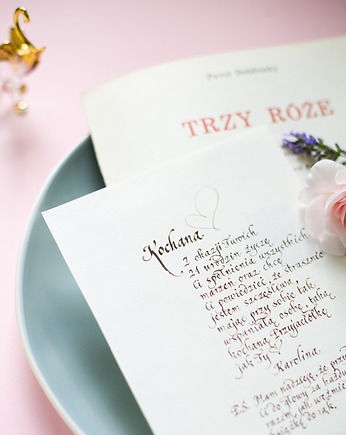 TRZY RÓŻE
Kochana
z okazji Twoich
21 urodzin życzę
Ci spełnienia wszystkich
marzeń oraz chcę
Ci powiedzieć że strasznie
jestem szczęśliwa
mając przy sobie tak
wspaniałą osobę, taką
kochaną Przyjaciółkę
jak Ty
Karolina
P.S. Mam nadzieję, że przy
Ci do głowy za każdy
razem jak weźmie
książkę do łąk.